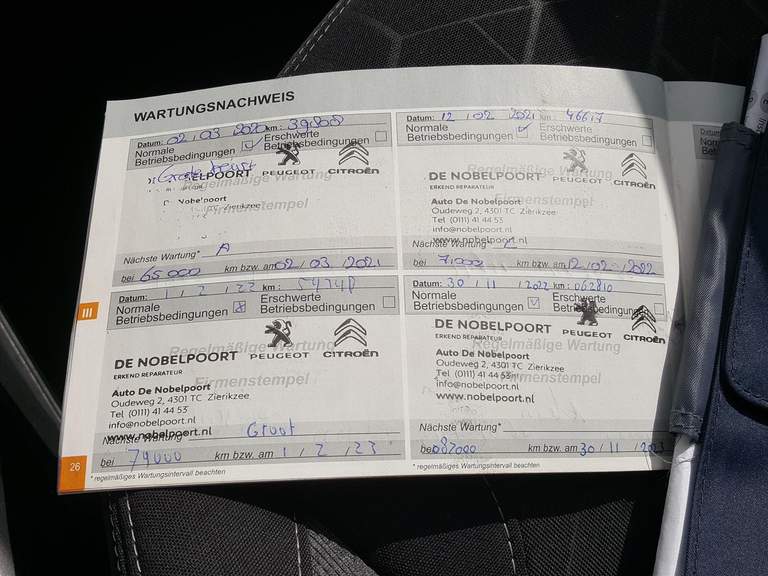 WARTUNGSNACHWEIS
Datum: 02 / 03 / 2020 km: 39808
Normale Betriebsbedingungen
Erschwerte Betriebsbedingungen
Regelmäßige Wartung
NOBELPOORT PEUGEOT CITROËN
Nobelpoort
Firmenstempel
TC Zierikzee
Nächste Wartung* A
bei 65000 km bzw. am 02 / 03 / 2021
Datum: 12 / 02 / 2021 km:
Normale Betriebsbedingungen
Erschwerte Betriebsbedingungen
Regelmäßige Wartung
DE NOBELPOORT PEUGEOT CITROËN
ERKEND REPARATEUR
Firmenstempel
Auto De Nobelpoort
Oudeweg 2, 4301 TC Zierikzee
Tel (0111) 41 44 53
info@nobelpoort.nl
www.nobelpoort.nl
Nächste Wartung*
bei km bzw. am 12 / 02 / 2022
III
Datum: 1 / 2 / 23 km:
Normale Betriebsbedingungen
Erschwerte Betriebsbedingungen
Regelmäßige Wartung
DE NOBELPOORT PEUGEOT CITROËN
ERKEND REPARATEUR
Firmenstempel
Auto De Nobelpoort
Oudeweg 2, 4301 TC Zierikzee
Tel (0111) 41 44 53
info@nobelpoort.nl
www.nobelpoort.nl
Nächste Wartung Groot
bei 79000 km bzw. am 1 / 2 / 23
Datum: 30 / 11 / 2022 km: 062810
Normale Betriebsbedingungen
Erschwerte Betriebsbedingungen
Regelmäßige Wartung
DE NOBELPOORT PEUGEOT CITROËN
ERKEND REPARATEUR
Firmenstempel
Auto De Nobelpoort
Oudeweg 2, 4301 TC Zierikzee
Tel (0111) 41 44 53
info@nobelpoort.nl
www.nobelpoort.nl
Nächste Wartung*
bei 087000 km bzw. am 30 / 11 / 2023
26
* regelmäßiges Wartungsintervall beachten
* regelmäßiges Wartungsintervall beachten